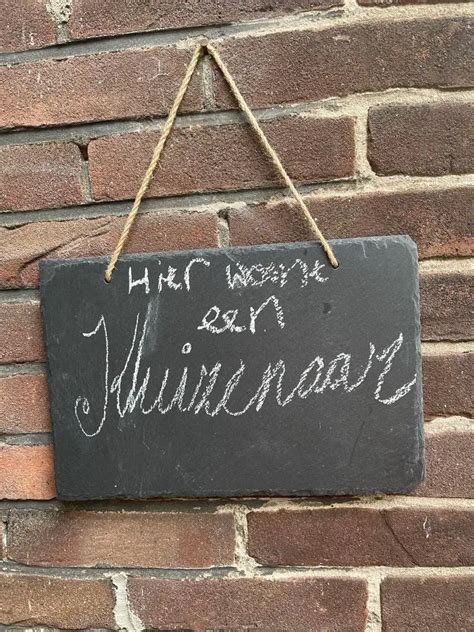 Hier woont
een
Kluizenaar